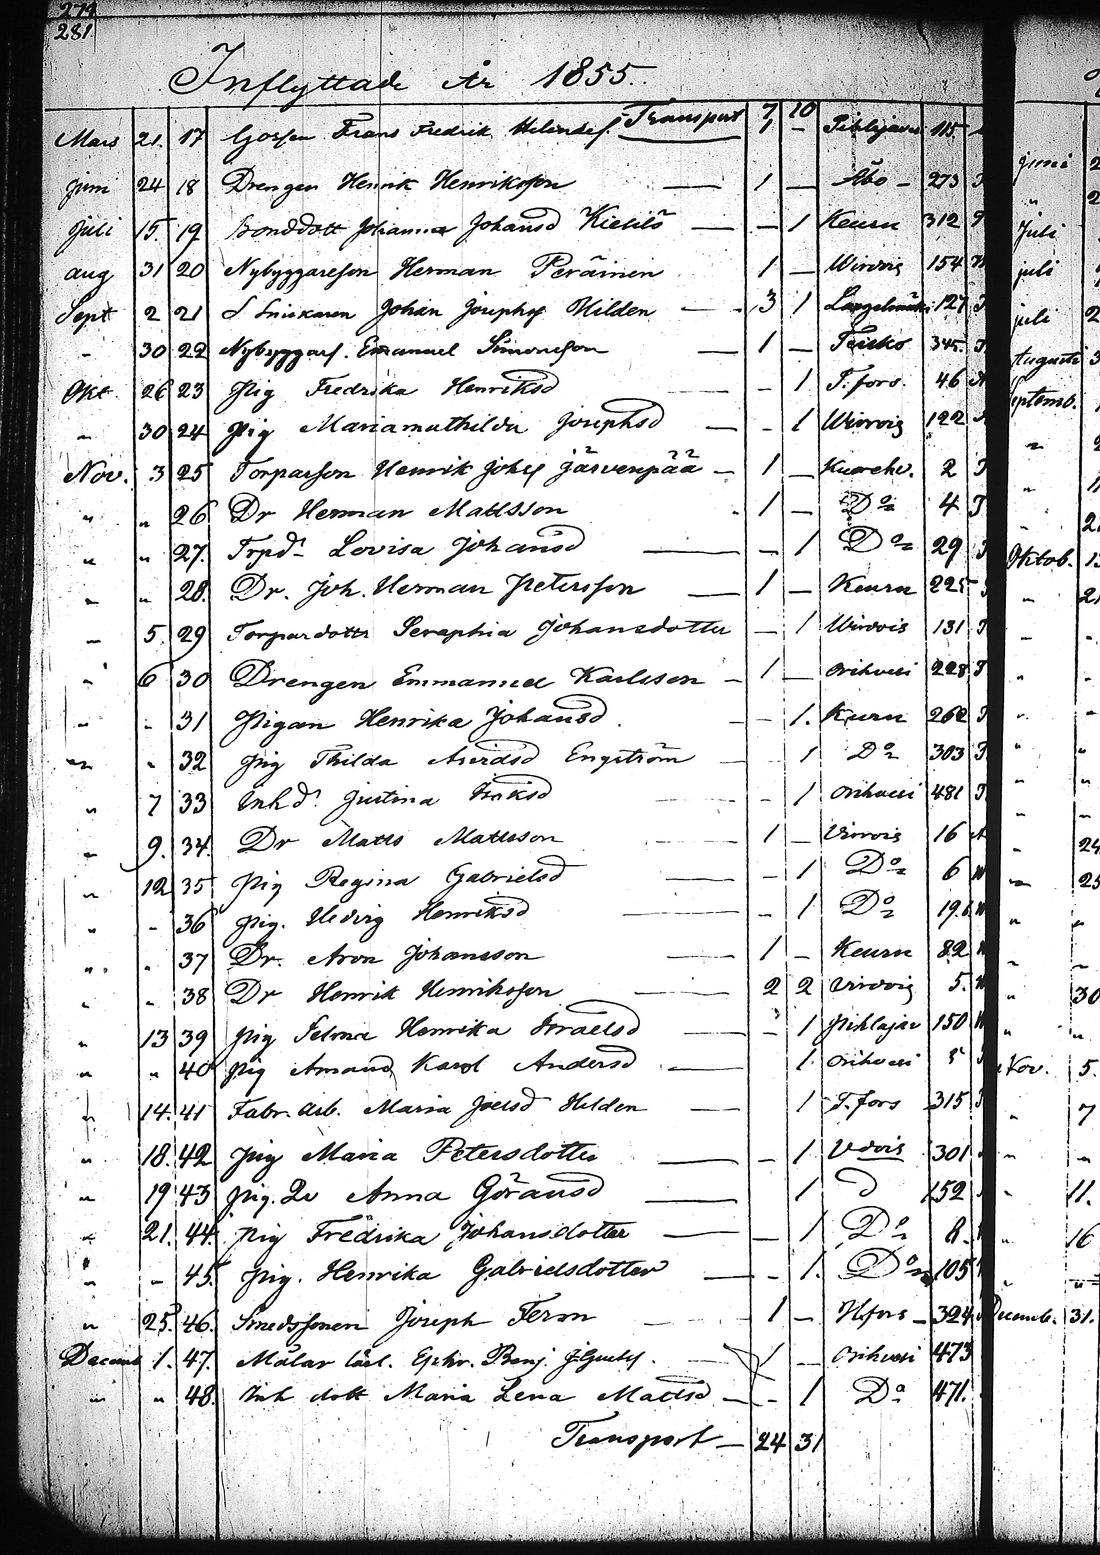 279
281
Inflyttade År 1855.
Transport 7 10
Mars 21. 17 Gossen Frans Fredrik 1 — 115
Juni 24 18 Drengen Henrik Henriksson — 1 — Åbo — 273
Juli 15. 19 Bonddott Johanna Johansd Kielilö — — 1 Keuru 312
Aug 31 20 Nybyggareson Herman Peräinen 1 — Wirdois 154
Sept 2 21 Johan Josephss Hilden — 3 1 127
" 30 22 Nybyggars. Emanuel Simonsson — 1 — Teisko 345.
Okt. 26 23 Pig Fredrika Henriksd — - 1 T.fors. 46
" 30 24 Pig Mariamathilda Josephsd — - 1 Wirdois 122
Nov. 3 25 Torparson Henrik Johss Järvenpää — 1 — 2
" " 26 Dr Herman Mattsson 1 — Do 4
" " 27. Trpd. Lovisa Johansd — — 1 Do 29
" " 28. Dr. Joh. Herman Petersson — 1 — Keuru 225
" 5. 29 Torpardottr Seraphia Johansdotter — 1 Wirdois 131
" 6 30 Drengen Emmanuel Karlsson — 1 — Orihvesi 228
" " 31 Pigan Henrika Johansd. — 1. Keuru 262
" " 32 Pig Thilda Engström — 1 Do 303
" 7 33 Inhd. Justina — - 1 Orihvesi 481
" 9. 34. Dr Matts Mattsson — 1 — Virdois 16
" 12 35 Pig Regina Gabrielsd — - 1 Do 6
" " 36 Pig. Hedvig Henriksd — - 1 Do 19.
" " 37 Dr. Aron Johansson — 1 — Keuru 82
" " 38 Dr Henrik Henriksson — 2 2 Virdois 5.
" 13 39 Pig Henrika Israelsd — - 1 Pihlajav 150
" " 40 Pig Amand Karol Andersd — 1. Orihvesi 5
" 14. 41 Fabr. arb. Maria Joelsd Hilden — 1 T.fors 315
" 18. 42 Pig Maria Petersdotter — - 1 Vdois 301
" 19 43 Pig. Anna Göransd — 1 D 152
" 21. 44. Pig Fredrika Johansdotter — - 1 Do 8.
" " 45. Pig. Henrika Gabrielsdotter — - 1. Do 105
" 25. 46. Smedssonen Joseph Ferm — 1 — H.fors — 324
Decemb 1. 47. Målar lärl. Ephr. Benj. — 1 — Orihvesi 473
" " 48. Inh dott Maria Lena Mattsd — - 1 Do 471.
Transport — 24 31
Juni
Juli
juli
juli
Augusti
Septemb.
Oktob.
24
25
30
Nov. 5.
7
11.
16
Decemb. 31.